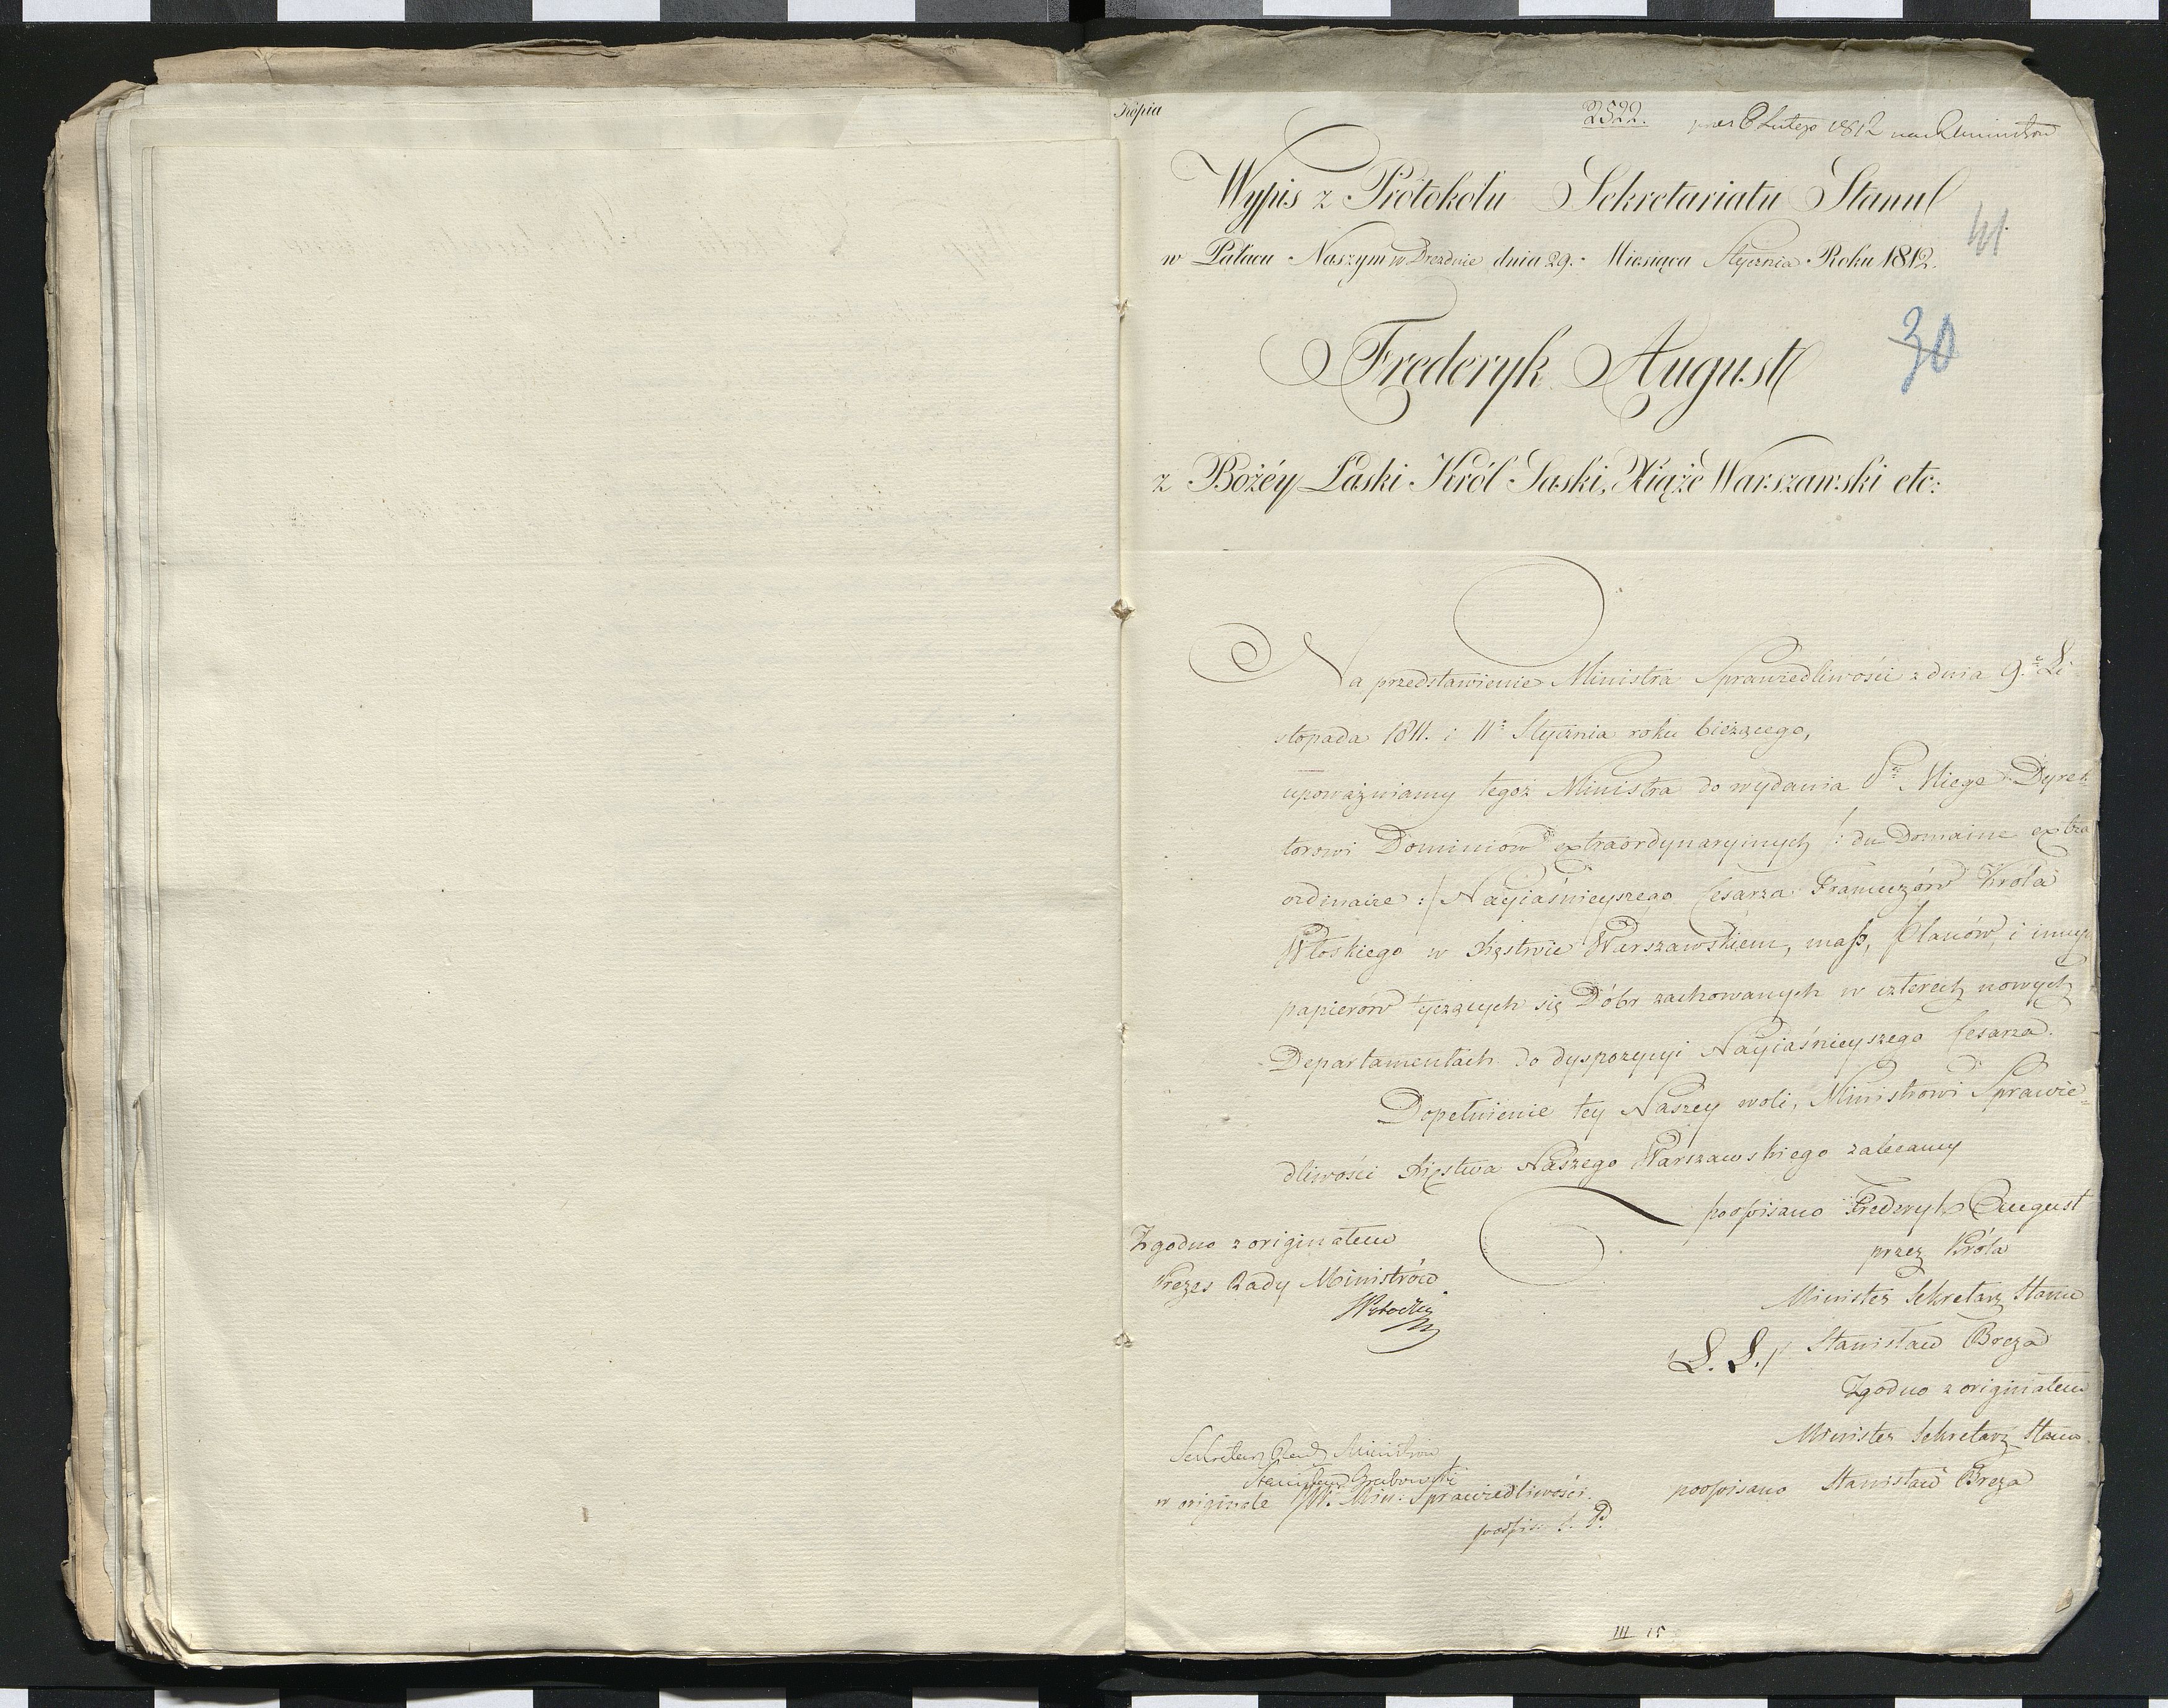 Kopia
2522.
8 Lutego 1812
Wypis z Protokołu Sekretariatu Stanu
41
w Pałacu Naszym w Dreznie dnia 29. Miesiąca Stycznia Roku 1812.
30
Frederyk August
z Bożéy Łaski Król Saski, Xiąże Warszawski etc:
Na przedstawienie Ministra Sprawiedliwości z dnia 9. Li
stopada 1811. i 11 Stycznia roku bieżącego,
upoważniamy tegoż Ministra do wydania Pu Miege Dyrek
torowi Dominiow extraordynaryinych /: du Domaine extra
ordinaire :/ Nayiaśnieyszego Cesarza Francuzów Krola
Włoskiego w Xięstwie Warszawskiem, mapp, planów, i innych
papierów tyczących się Dóbr zachowanych w czterech nowych
Departamentach do dyspozycyi Nayiaśnieyszego Cesarza.
Dopełnienie tey Naszey woli, Ministrowi Sprawie-
dliwości Xięstwa Naszego Warszawskiego zalecamy
podpisano Frederyk August
przez Króla
Minister Sekretarz Stanu
/L. S./ Stanisław Breza
Zgodno z originałem
Minister Sekretarz Stanu
podpisano Stanisław Breza
Zgodno z originałem
Prezes Rady Ministrów
Sekretarz Rady Ministrów
Stanisław Grabowski
w originale JW. Min: Sprawiedliwości
podpis:
III 15